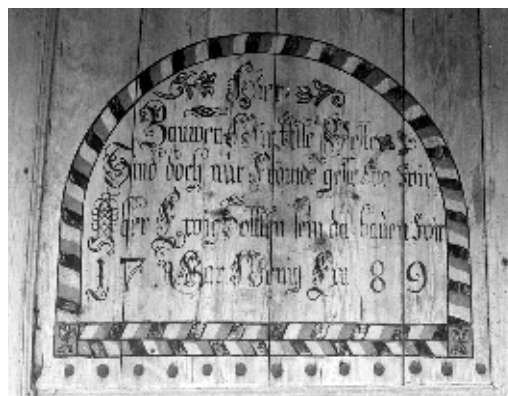 Hier
Bauwen Wir alle Veste
Sind doch nur Frömde geste Wir
Ewig Sollten sein da bauen Wir
17 Gar Wenig Ein 89